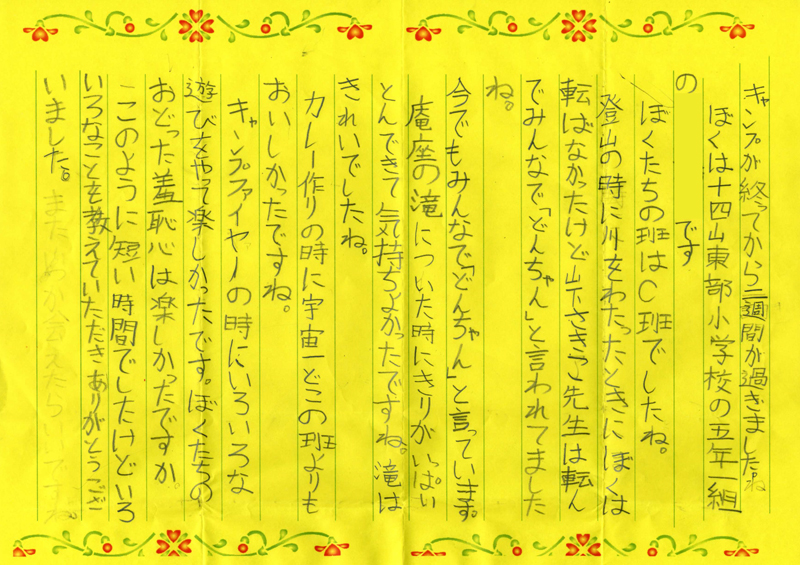 キャンプが終ってから二週間が過ぎました。ね
ぼくは十四山東部小学校の五年一組
の　　　です
ぼくたちの班はC班でしたね。
登山の時に川をわたったときにぼくは
転ばなかったけど山下さきこ先生は転ん
でみんなで「どんちゃん」と言われてました
ね。
今でもみんなで「どんちゃん」と言っています。
庵座の滝についた時にきりがいっぱい
とんできて気持ちよかったですね。滝は
きれいでしたね。
カレー作りの時に宇宙一どこの班よりも
おいしかったですね。
キャンプファイヤーの時にいろいろな
遊びをやって楽しかったです。ぼくたちの
おどった羞恥心は楽しかったですか。
このように短い時間でしたけどいろ
いろなことを教えていただきありがとうござ
いました。